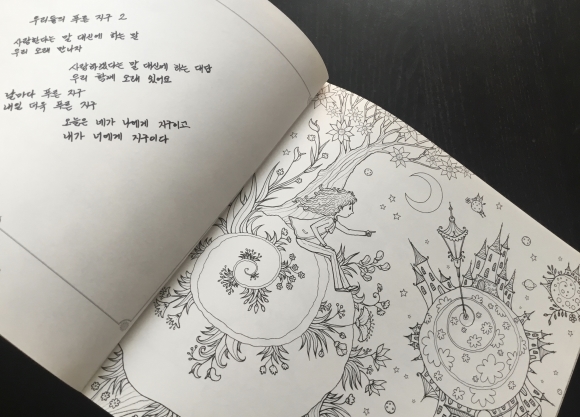 우리들의 푸른 지구 2
사랑한다는 말 대신에 하는 말
우리 오래 만나자
사랑하겠다는 말 대신에 하는 대답
우리 함께 오래 있어요
날마다 푸른 지구
내일 더욱 푸른 지구
오늘은 네가 나에게 지구이고
내가 너에게 지구이다